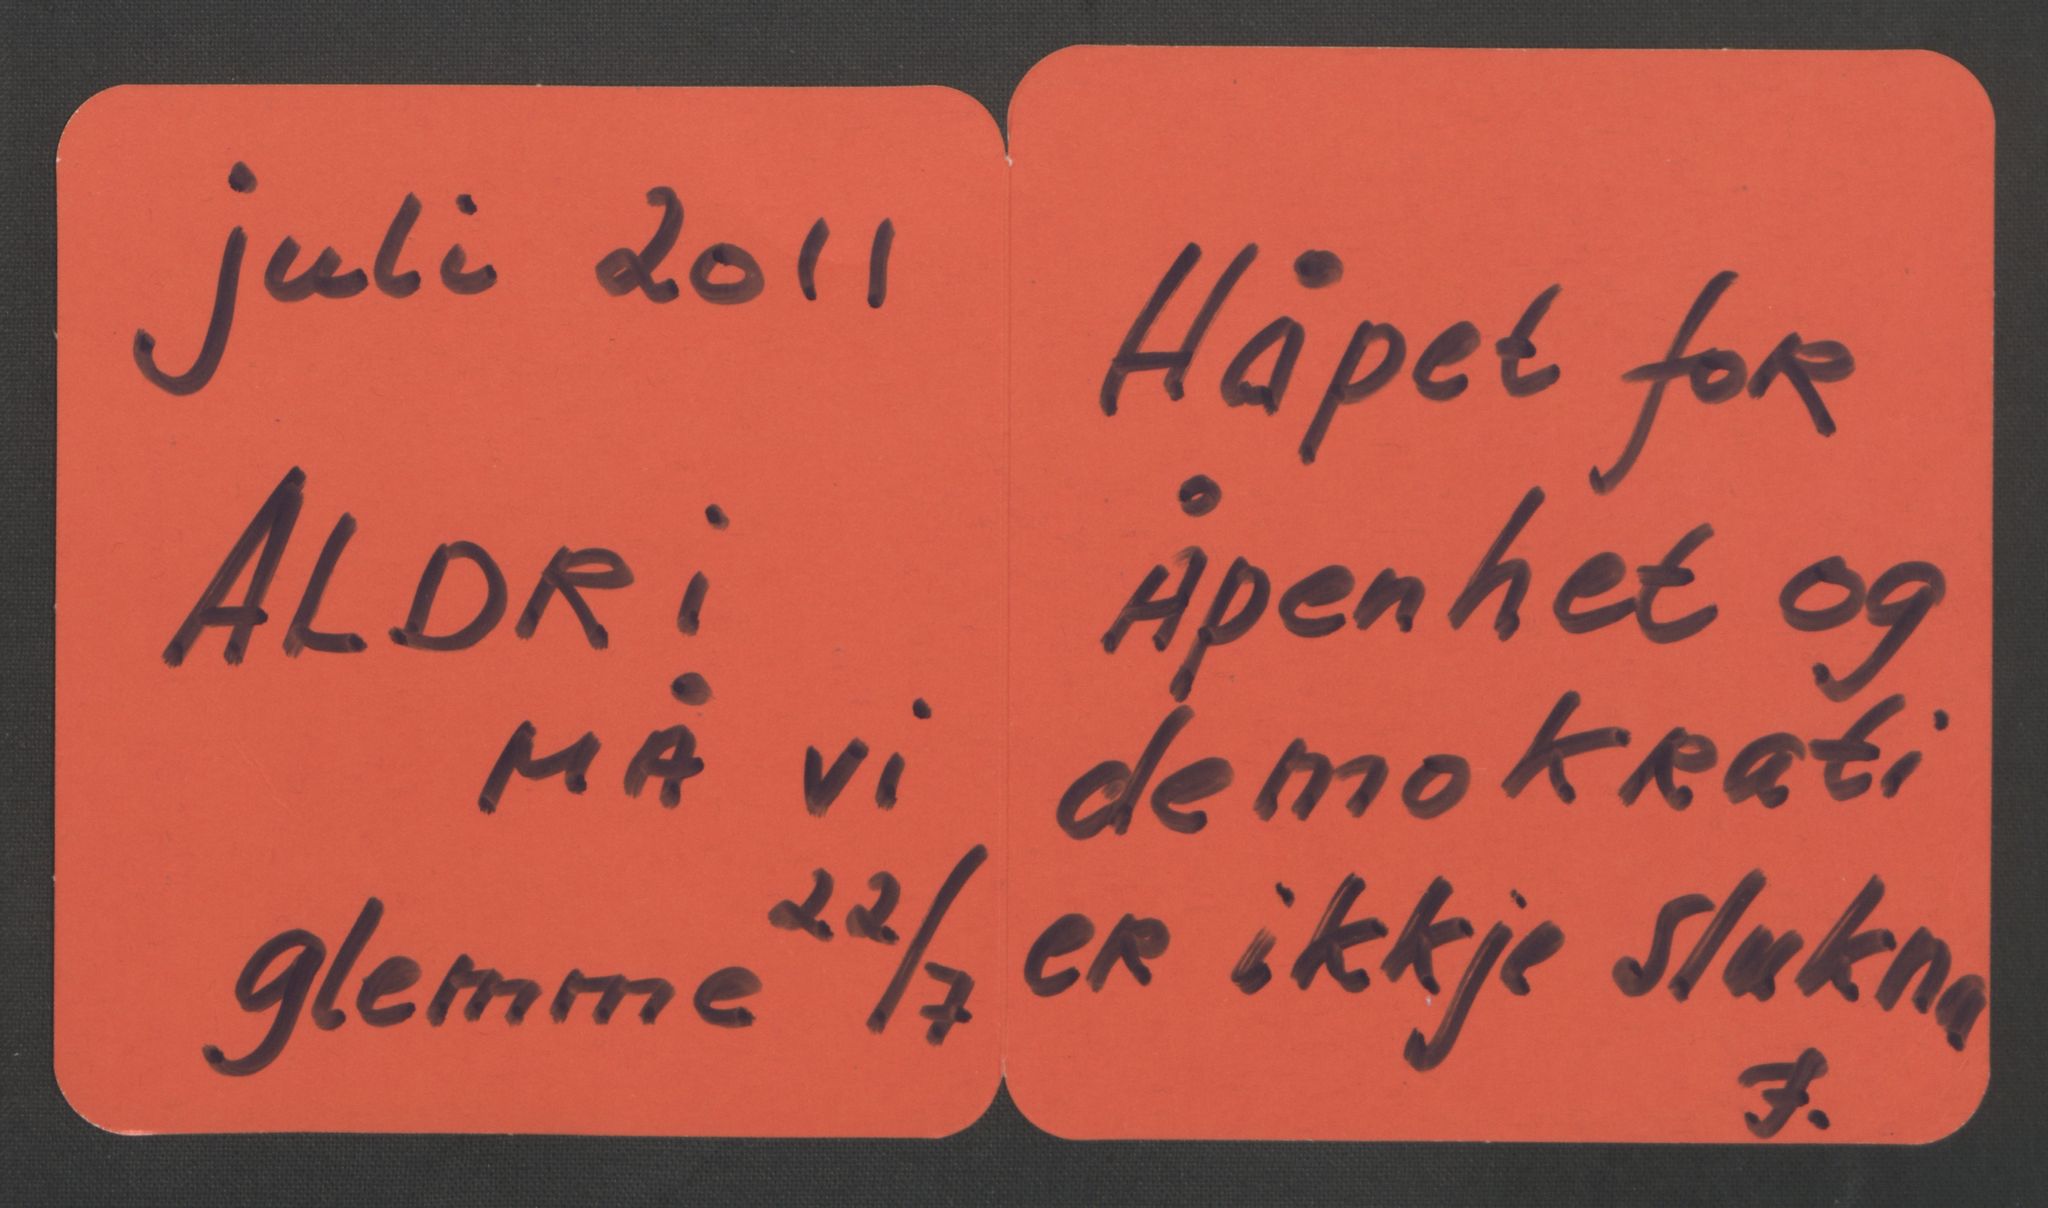 juli 2011
ALDRi
MÅ vi
glemme 22/7
Håpet for
Åpenhet og
demokrati
er ikkje slukna
J.